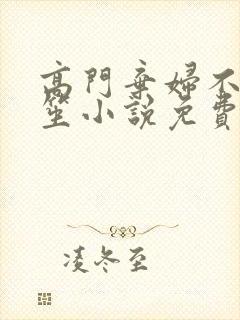 高門棄婦不
笙小說免費
凌冬至